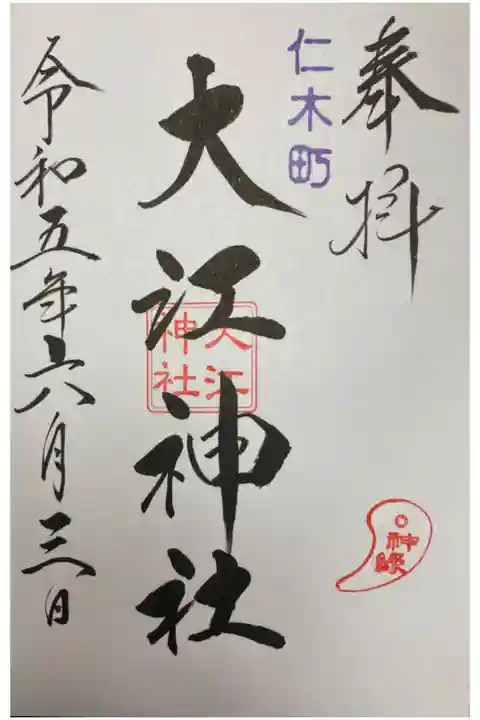 奉拝
仁木町
大江神社
大江
神社
令和五年六月三日
神縁